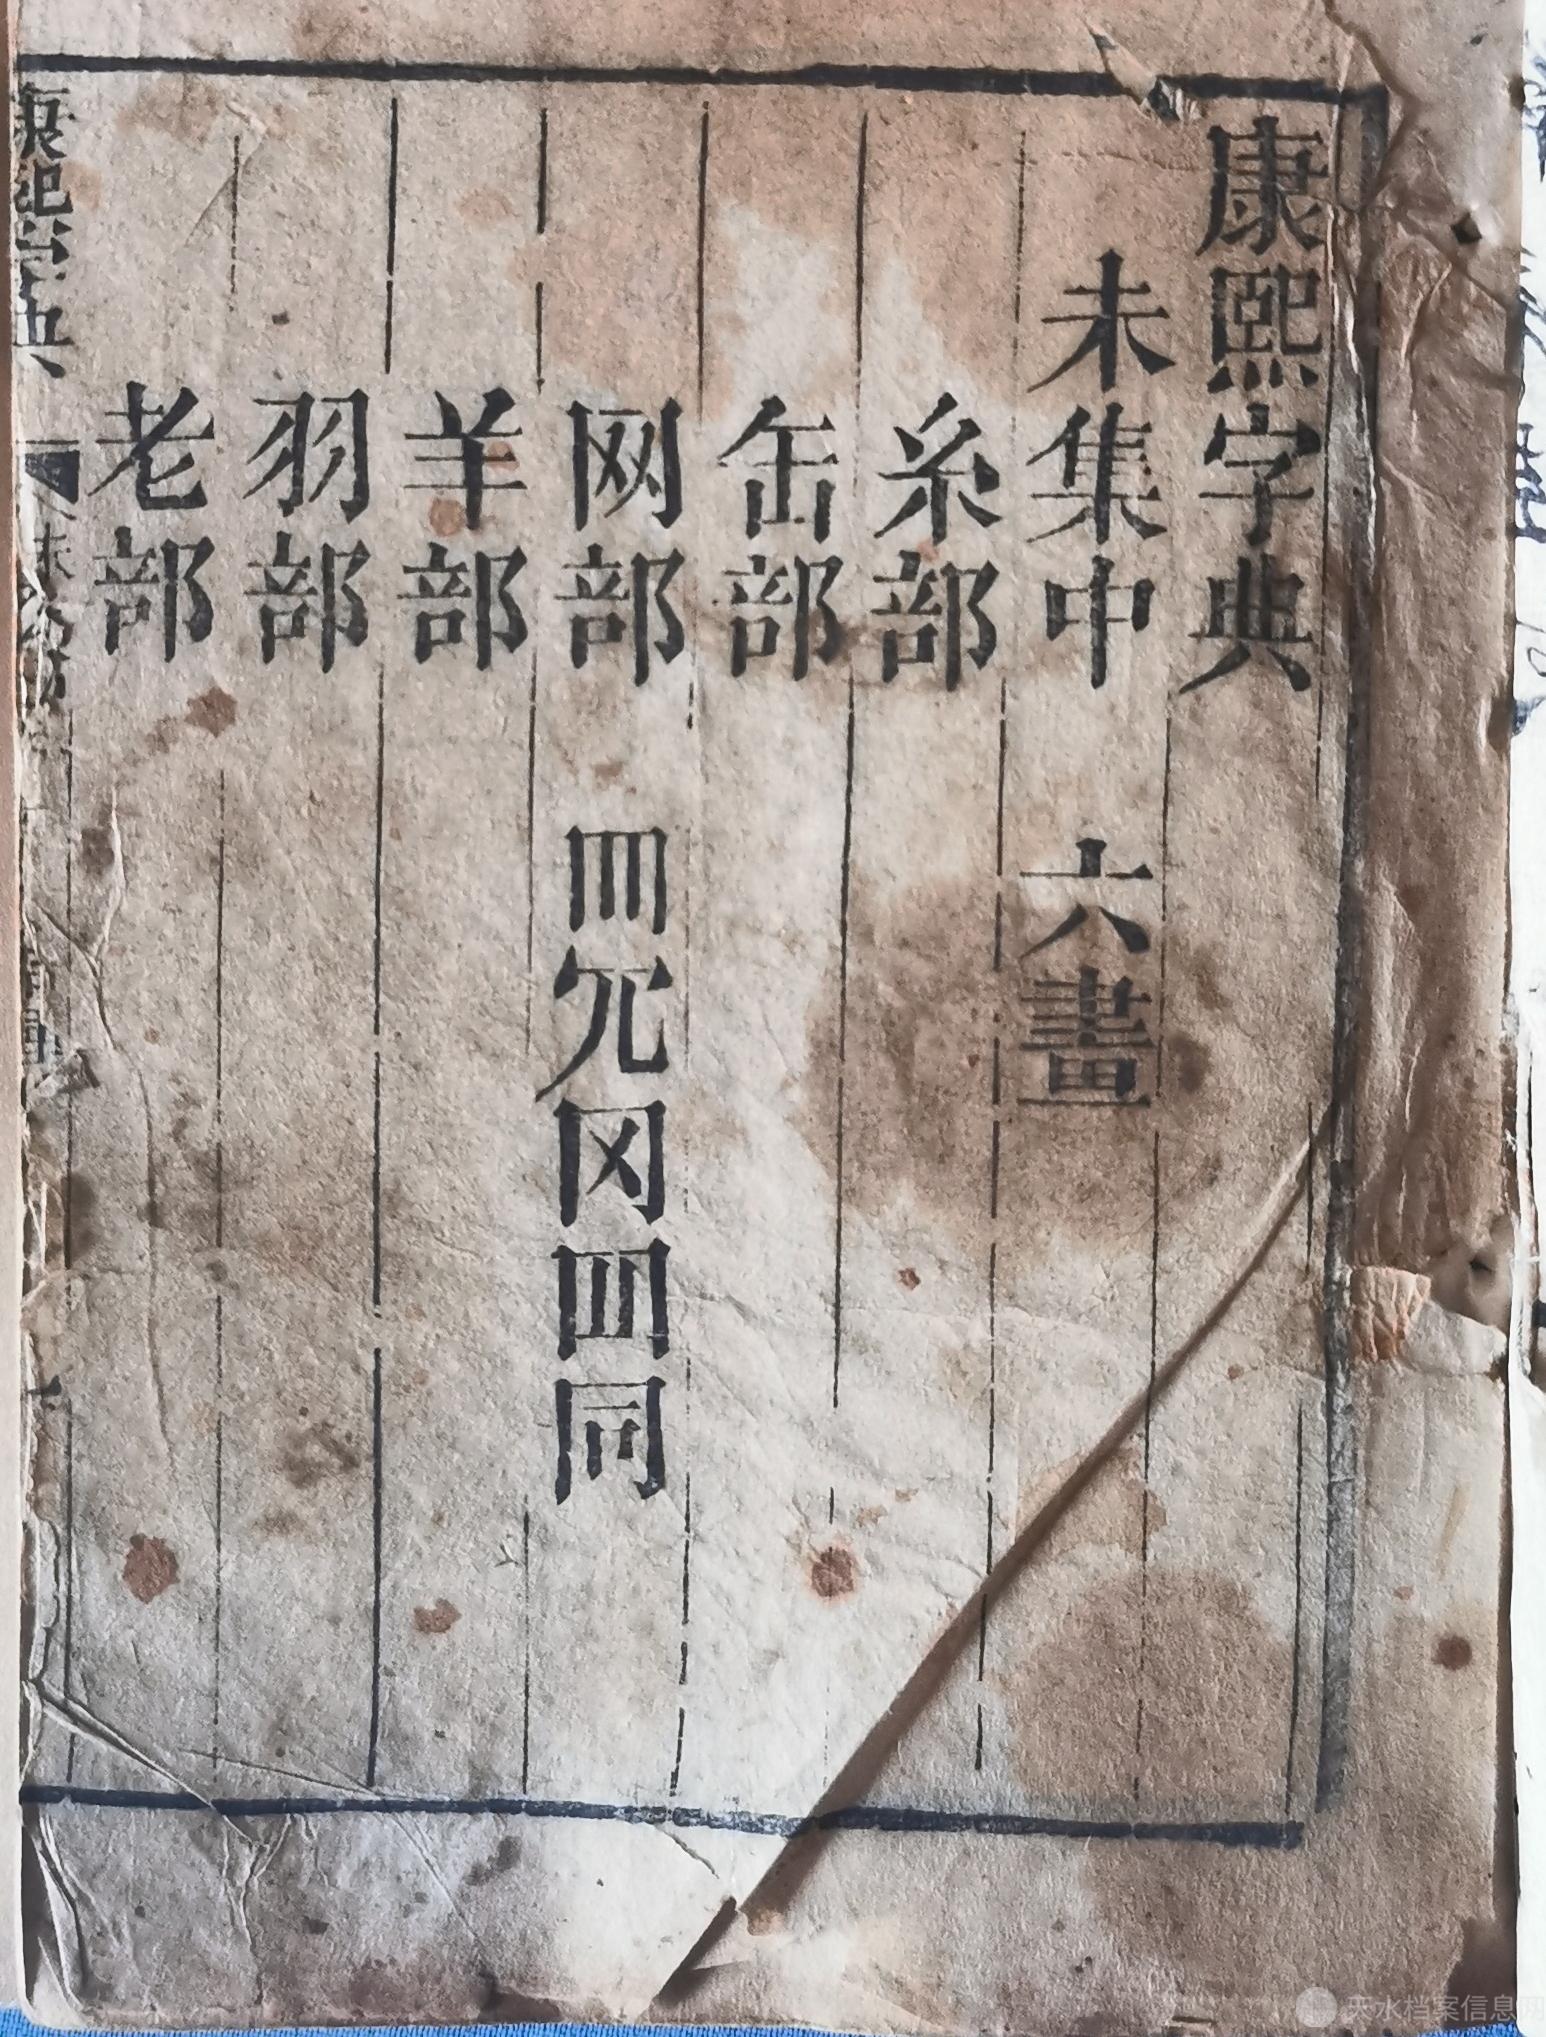 康熙字典
未集中 六畫
糸部
缶部
网部 罒㓁冈𦉪同
羊部
羽部
老部
康熙字典
未集
天水档案信息网